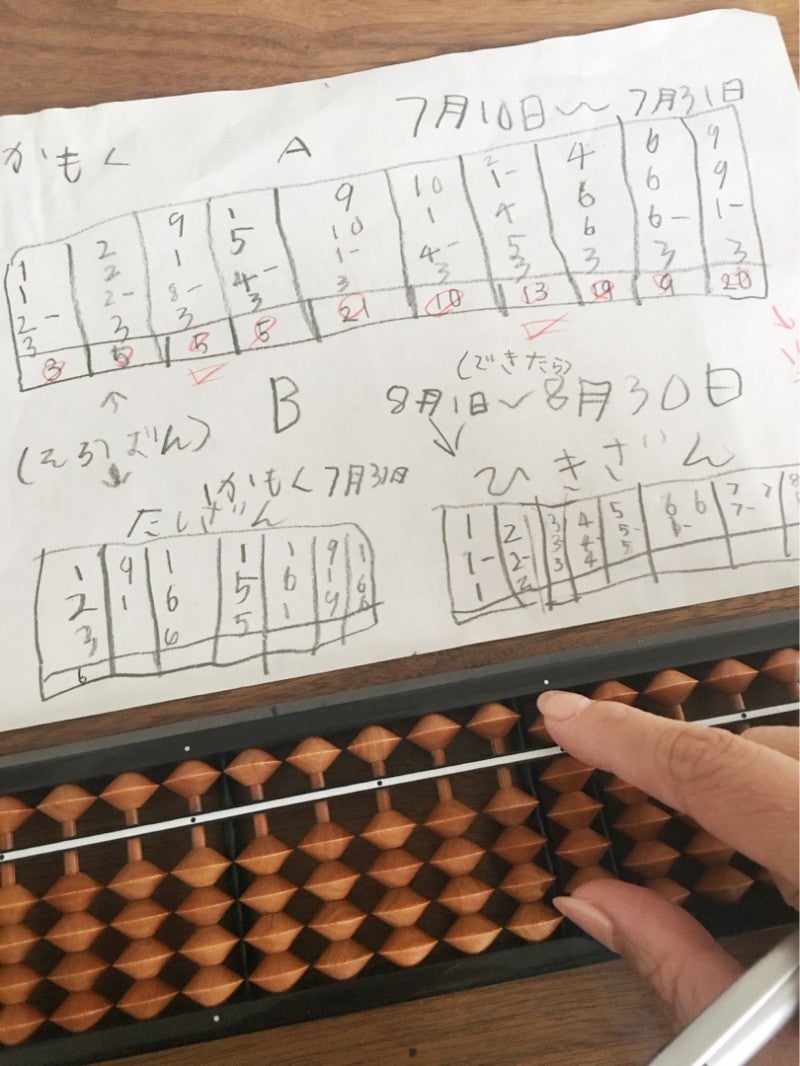 かもく A 7月10日〜7月31日
1 2 9 1 9 10 2 4 6 9
1 2 1 5 10 1 1- 6 6 9
2- 2- 8- 4- 1- 4- 4 6 6- 1-
3 3 3 3 3 3 5 3 3 3
3
3 5 5 5 21 10 13 19 9 20
(できたら)
B 8月1日〜8月30日
(そろばん)
かもく7月31日
たしざん ひきざん
1 9 1 1 1 9 1
2 1 6 5 6 1 6
3 6 5 1 9 6
6
1 2 3 4 5 6 6 7 7
1- 2- 3 4- 5- 6- 7-
1 2 3 4 5